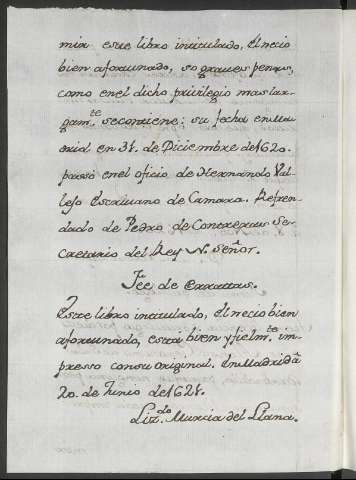 mir este libro intitulado, El necio
bien afortunado, so graues penas,
como en el dicho privilegio mas lar-
gam.te se contiene: su fecha en Ma-
drid en 31. de Diciembre de 1620.
passó en el oficio de Hernando Val-
lejo Escrivano de Camara. Refren-
dado de Pedro de Contreras Se-
cretario del Rey N. Señor.
Fee de Erratas.
Este libro intitulado, El necio bien
afortunado, está bien y fielm.te im-
presso con su original. En Madrid à
20. de Junio de 1621.
Liz.do Murcia del Llana.